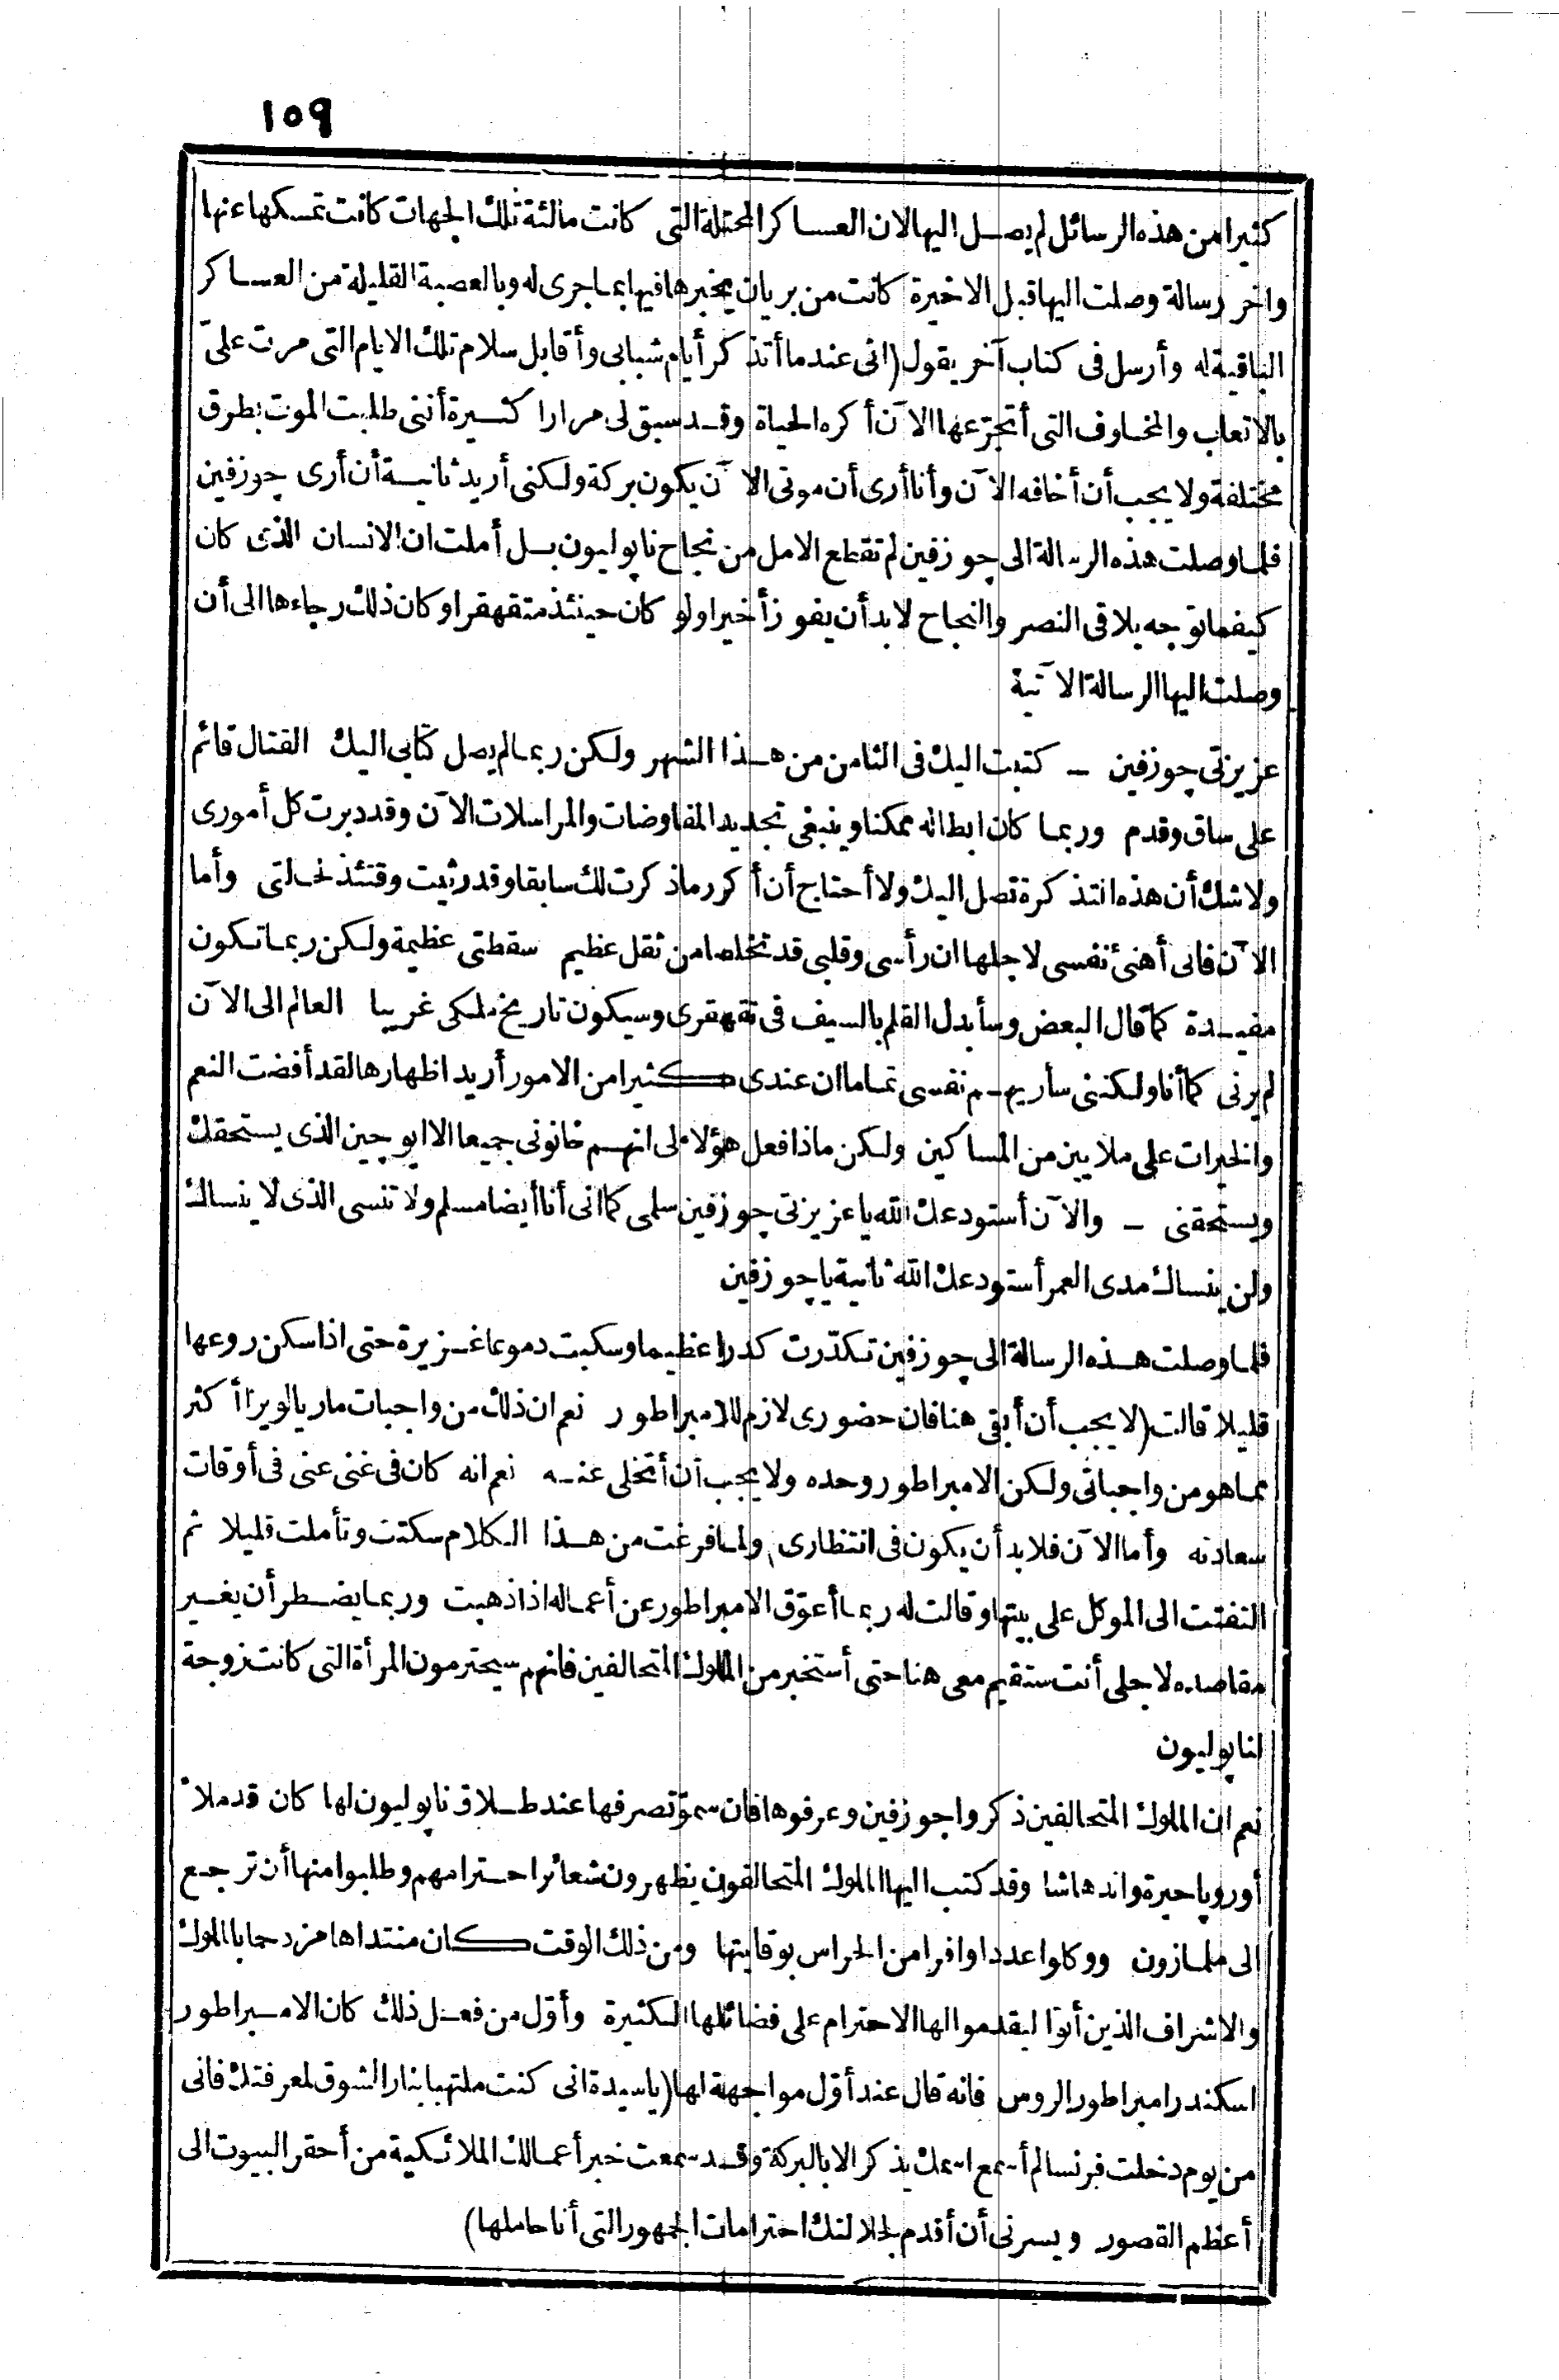 ١٥٩
كثيرا من هذه الرسائل لم يصل اليها لان العساكر المحتلة التى كانت مالئة تلك الجهات كانت تمسكها عنها
واخر رسالة وصلت اليها قبل الاخيرة كانت من بريان يخبرها فيها بما جرى له وبالعصبة القليلة من العساكر
الباقية له وأرسل فى كتاب آخر يقول (انى عندما أتذكر أيام شبابى وأقابل سلام تلك الايام التى مرت علىّ
بالاتعاب والمخاوف التى أتجرّعها الآن أكره الحياة وقد سبق لى مرارا كثيرة أننى طلبت الموت بطرق
مختلفة ولا يجب أن أخافه الآن وأنا أرى أن موتى الآن يكون بركة ولكنى أريد ثانية أن أرى چوزفين
فلما وصلت هذه الرسالة الى چوزفين لم تقطع الامل من نجاح ناپوليون بل أملت ان الانسان الذى كان
كيفما توجه يلاقى النصر والنجاح لابد أن يفوز أخيرا ولو كان حينئذ متقهقرا وكان ذلك رجاءها الى أن
وصلت اليها الرسالة الآتية
عزيزتى چوزفين ــ كتبت اليك فى الثامن من هذا الشهر ولكن ربما لم يصل كتابى اليك القتال قائم
على ساق وقدم وربما كان ابطاله ممكنا وينبغى تجديد المفاوضات والمراسلات الآن وقد دبرت كل أمورى
ولاشك أن هذه التذكرة تصل اليك ولا أحتاج أن أكرر ماذكرت لك سابقا وقد رثيت وقتئذ لحالتى وأما
الآن فانى أهنئ نفسى لاجلها ان رأسى وقلبى قد تخلصا من ثقل عظيم سقطتى عظيمة ولكن ربما تكون
مفيدة كما قال البعض وسأبدل القلم بالسيف فى تقهقرى وسيكون تاريخ ملكى غريبا العالم الى الآن
لم يرنى كما أنا ولكننى سأريهم نفسى تماما ان عندى كثيرا من الامور أريد اظهارها لقد أفضت النعم
والخيرات على ملايين من المساكين ولكن ماذا فعل هؤلاء لى انهم خانونى جميعا الا ايوچين الذى يستحقك
ويستحقنى ــ والآن أستودعك الله ياعزيزتى چوزفين سلمى كما انى أنا أيضا مسلم ولا تنسى الذى لا ينساك
ولن ينساك مدى العمر أستودعك الله ثانية ياچوزفين
فلما وصلت هذه الرسالة الى چوزفين تكدّرت كدرا عظيما وسكبت دموعا غزيرة حتى اذا سكن روعها
قليلا قالت (لا يجب أن أبقى هنا فان حضورى لازم للامبراطور نعم ان ذلك من واجبات ماريا لويزا أكثر
مما هو من واجباتى ولكن الامبراطور وحده ولا يجب أن أتخلى عنه نعم انه كان فى غنى عنى فى أوقات
سعادته وأما الآن فلا بد أن يكون فى انتظارى) ولما فرغت من هذا الكلام سكتت وتأملت قليلا ثم
التفتت الى الموكل على بيتها وقالت له ربما أعوّق الامبراطور عن أعماله اذا ذهبت وربما يضطر أن يغير
مقاصده لاجلى أنت ستقيم معى هنا حتى أستخبر من الملوك المتحالفين فانهم سيحترمون المرأة التى كانت زوجة
لناپوليون
نعم ان الملوك المتحالفين ذكروا جوزفين وعرفوها فان سموّ تصرفها عند طلاق ناپوليون لها كان قد ملأ
أوروپا حيرة واندهاشا وقد كتب اليها الملوك المتحالفون يظهرون شعائر احترامهم وطلبوا منها أن ترجع
الى ملمازون ووكلوا عددا وافرا من الحراس بوقايتها ومن ذلك الوقت كان منتداها مزدحما بالملوك
والاشراف الذين أتوا ليقدموا لها الاحترام على فضائلها الكثيرة وأوّل من فعل ذلك كان الامبراطور
اسكندر امبراطور الروس فانه قال عند أوّل مواجهة لها (ياسيدة انى كنت ملتهبا بنار الشوق لمعرفتك فانى
من يوم دخلت فرنسا لم أسمع اسمك يذكر الا بالبركة وقد سمعت خبر أعمالك الملائكية من أحقر البيوت الى
أعظم القصور ويسرنى أن أقدم لجلالتك احترامات الجمهور التى أنا حاملها)